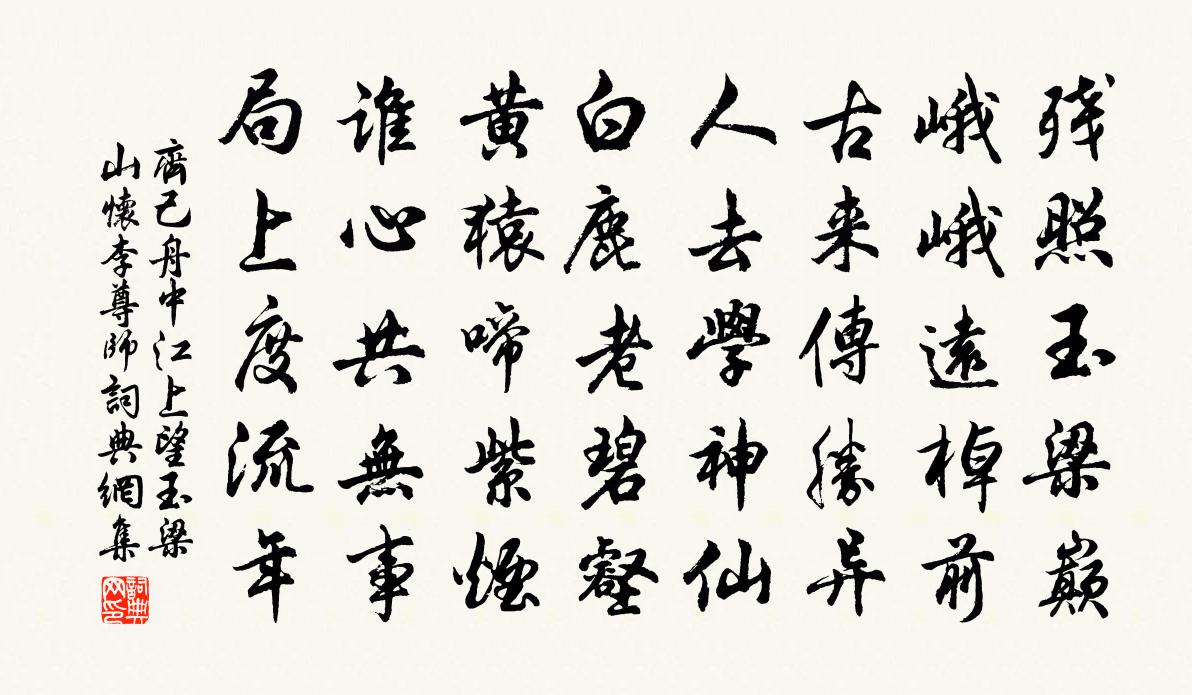 残照玉梁巔
峨峨遠棹前
古来傳勝异
人去學神仙
白鹿老碧壑
黄猿啼紫煙
誰心共無事
局上度流年
齊己舟中江上望玉梁
山懷李尊師詞典網集
詞典网印